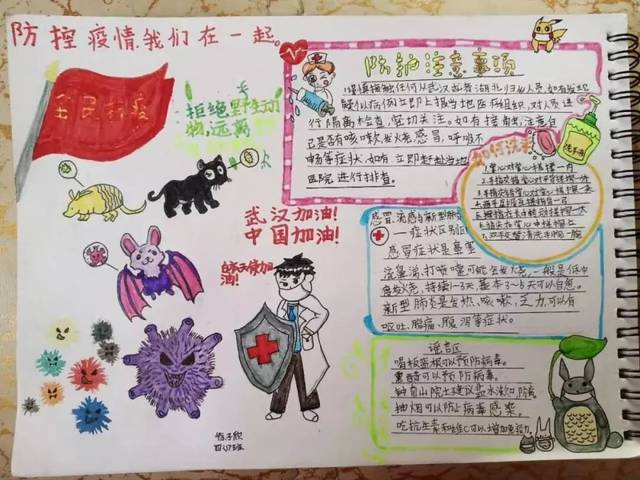 防控疫情,我们在一起。
全民抗疫
拒绝野生动
物,远离
武汉加油!
中国加油!
白衣天使加
油!
防护注意事项
1.谨慎接触任何从武汉或者湖北归来人员,如有发现
疑似病例立即上报当地医疗组织,对人员进
行隔离检查,密切关注。如有接触,注意自
己是否有咳嗽、发烧感冒、呼吸不
畅等症状,如有立即赶赴当地
医院进行排查。
如何洗手
洗手液
1.掌心对掌心搓揉一周
感冒、流感与新型肺炎
一症状区别
感冒症状是鼻塞
流鼻涕、打喷嚏可能会发烧,一般是低中
度发烧,持续1-3天,基本3~6天可以自愈。
新型肺炎是发热、咳嗽、乏力,可以有
呕吐、腹痛、腹泻等症状。
谣言区
喝板蓝根可以预防病毒。
熏醋可以预防病毒。
钟南山院士建议盐水漱口防病毒
抽烟可以防止病毒感染。
吃抗生素和维C可以增加免疫力
四(3)班